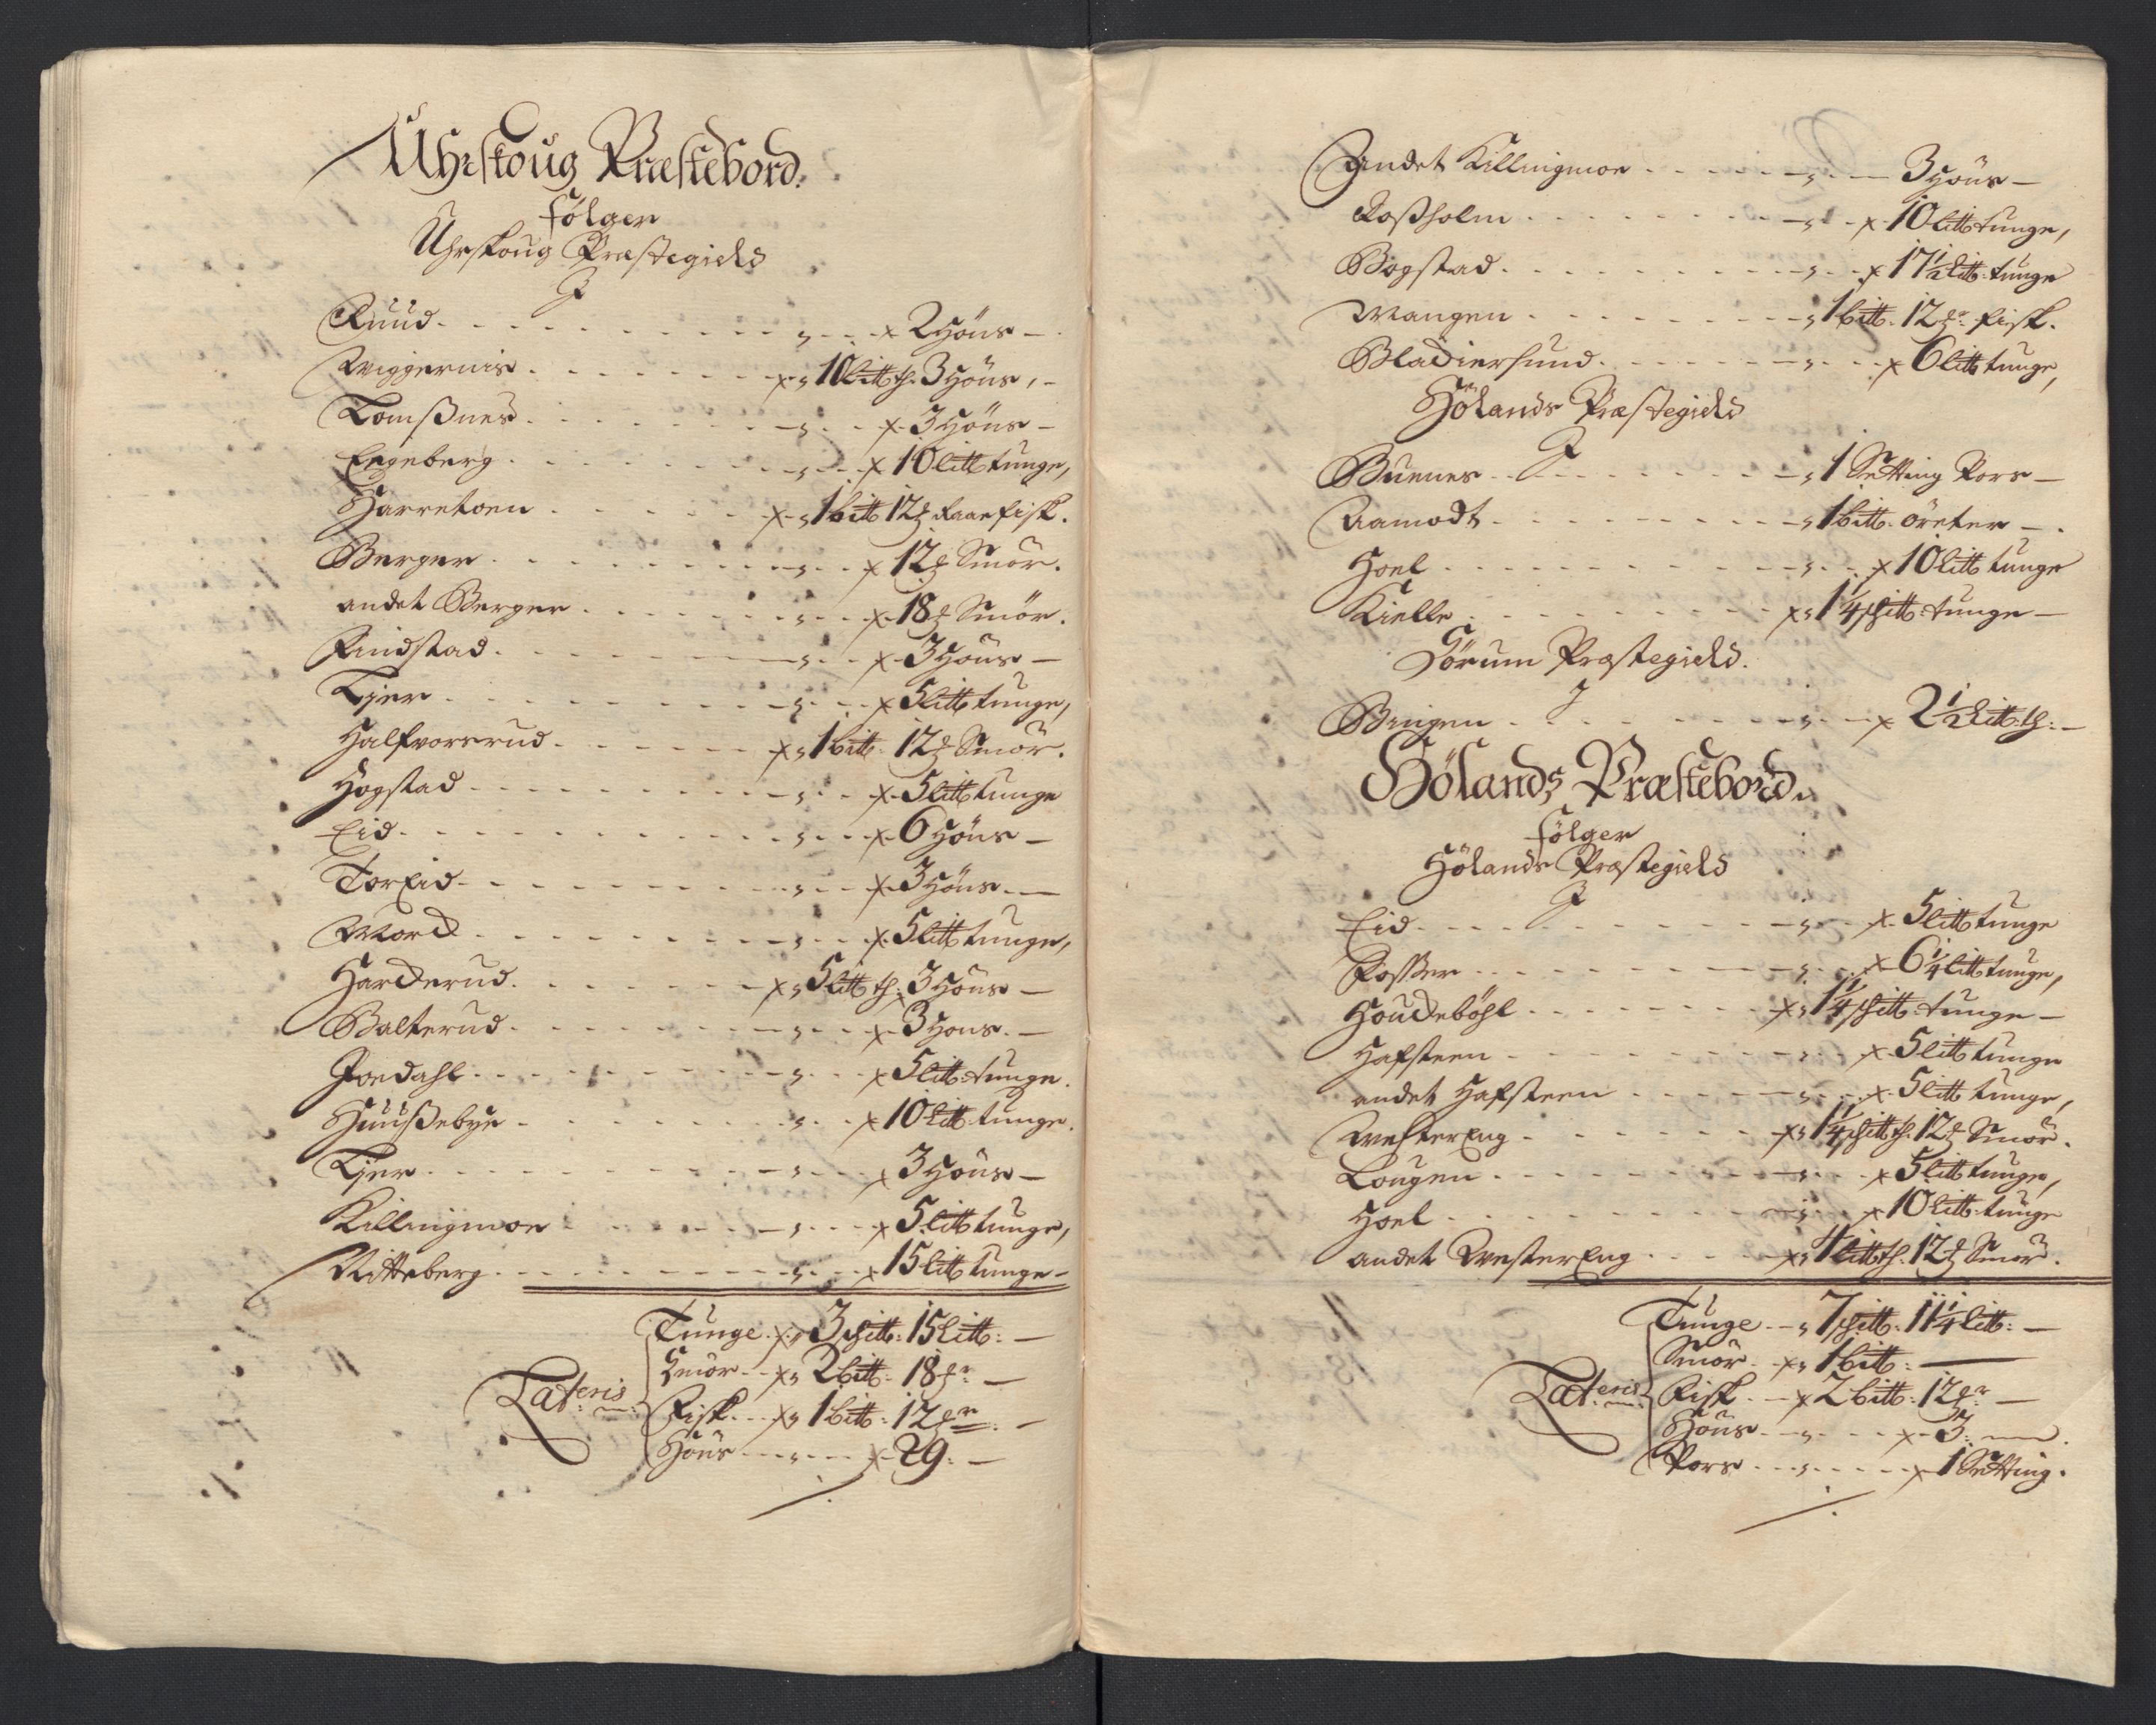 Uhrskoug Præstebord.
følger
Uhrskoug Præstegield
J
Ruud - - - 2 Höns -
Wiggernis - - - 10 litt tg. 3 Höns, -
Tomßnes - - - 3 Höns -
Engeberg - - - 10 litt tunge,
Harretoen - - - 1 bitt 12 raae fisk.
Berger - - - 12 Smör.
andet Berger - - - 18 Smör.
Rindstad - - - 3 Höns -
Tjer - - - 5 litt tunge,
Halfvorsrud - - - 1 bitt 12 Smör.
Hogstad - - - 5 litt tunge
Eid - - - 6 Höns -
Tor Eid - - - 3 Höns -
Mork - - - 5 litt tunge,
Harkerud - - - 5 litt tg. 3 Höns -
Balterud - - - 3 Höns. -
Joedahl - - - 5 litt: tunge.
Huußebye - - - 10 litt tunge.
Tjer - - - 3 Höns -
Killingmoe - - - 5 litt tunge,
Nitteberg - - - 15 litt tunge -
Lateris
Tunge - 3 schitt: 15 litt: -
Smör - 2 bitt: 18 -
Fisk - 1 bitt: 12 -
Höns - 29: -
Andet Killingmoe - - - 3 Höns -
Roßholm - - - 10 litt tunge,
Bogstad - - - 17 1/2 litt: tunge
Mangen - - - 1 bitt. 12 fisk.
Bladiersund - - - 6 litt tunge,
Hölands Præstegield
J
Buenes - - - 1 Setting Pors -
Aamodt - - - 1 bitt. örreter -
Hoel - - - 10 litt tunge
Kielle - - - 1 1/4 schitt: tunge -
Sörum Præstegield.
J
Bingen - - - 2 1/2 litt. tg: -
Hölands Præstebord.
følger
Hölands Præstegield
J
Eid - - - 5 litt tunge
Foßer - - - 6 1/4 litt tunge,
Houkeböhl - - - 1 1/4 schitt: tunge -
Hafsteen - - - 5 litt tunge
andet Hafsteen - - - 5 litt tunge,
Wester Eng - - - 1 1/4 schitt tg. 12 Smör.
Lougen - - - 5 litt tunge,
Hoel - - - 10 litt: tunge
andet Wester Eng - - - 1 litt tg. 12 Smör.
Lateris
Tunge - 7 schitt: 11 1/4 litt: -
Smör - 1 bitt: -
Fisk - 2 bitt: 12 -
Höns - 3: -
Pors - 1 Setting.